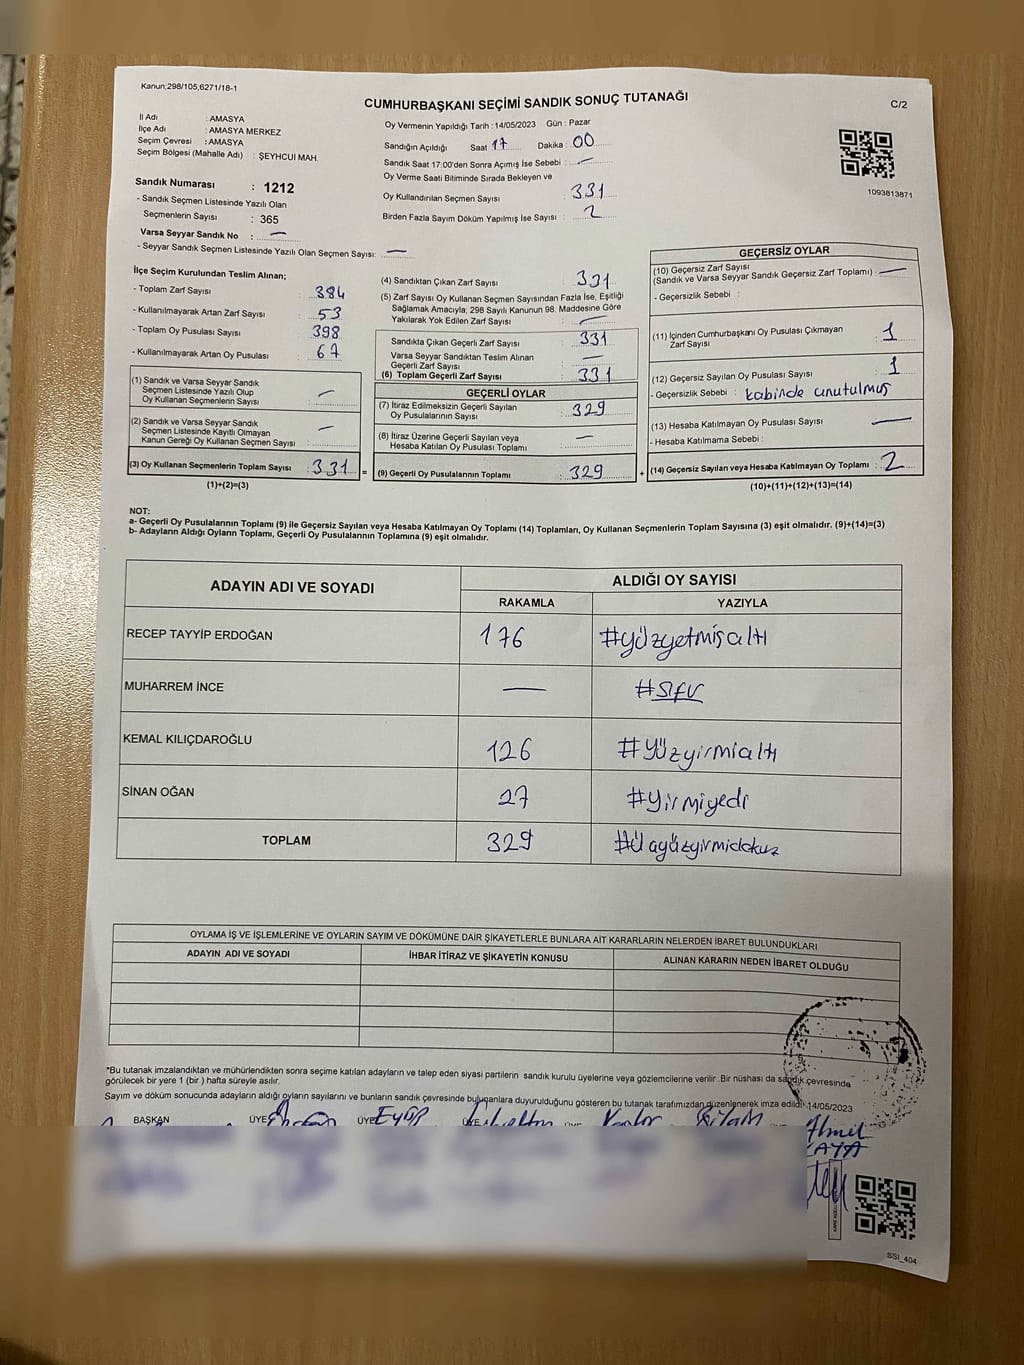 Kanun;298/105,6271/18-1
CUMHURBAŞKANI SEÇİMİ SANDIK SONUÇ TUTANAĞI
C/2
İl Adı : AMASYA
İlçe Adı : AMASYA MERKEZ
Seçim Çevresi : AMASYA
Seçim Bölgesi (Mahalle Adı) : ŞEYHCUİ MAH.
Oy Vermenin Yapıldığı Tarih :14/05/2023 Gün : Pazar
Sandığın Açıldığı Saat 17 Dakika : 00
Sandık Saat 17:00'den Sonra Açılmış İse Sebebi : —
Oy Verme Saati Bitiminde Sırada Bekleyen ve
Oy Kullandırılan Seçmen Sayısı : 331
Birden Fazla Sayım Döküm Yapılmış İse Sayısı : 2
1093813871
Sandık Numarası : 1212
- Sandık Seçmen Listesinde Yazılı Olan
Seçmenlerin Sayısı : 365
Varsa Seyyar Sandık No : —
- Seyyar Sandık Seçmen Listesinde Yazılı Olan Seçmen Sayısı: —
İlçe Seçim Kurulundan Teslim Alınan;
- Toplam Zarf Sayısı : 384
- Kullanılmayarak Artan Zarf Sayısı : 53
- Toplam Oy Pusulası Sayısı : 398
- Kullanılmayarak Artan Oy Pusulası : 67
(1) Sandık ve Varsa Seyyar Sandık
Seçmen Listesinde Yazılı Olup
Oy Kullanan Seçmenlerin Sayısı : —
(2) Sandık ve Varsa Seyyar Sandık
Seçmen Listesinde Kayıtlı Olmayan
Kanun Gereği Oy Kullanan Seçmen Sayısı : —
(3) Oy Kullanan Seçmenlerin Toplam Sayısı : 331 =
(1)+(2)=(3)
(4) Sandıktan Çıkan Zarf Sayısı : 331
(5) Zarf Sayısı Oy Kullanan Seçmen Sayısından Fazla İse, Eşitliği
Sağlamak Amacıyla, 298 Sayılı Kanunun 98. Maddesine Göre
Yakılarak Yok Edilen Zarf Sayısı : —
Sandıkta Çıkan Geçerli Zarf Sayısı : 331
Varsa Seyyar Sandıktan Teslim Alınan
Geçerli Zarf Sayısı : —
(6) Toplam Geçerli Zarf Sayısı : 331
GEÇERLİ OYLAR
(7) İtiraz Edilmeksizin Geçerli Sayılan
Oy Pusulalarının Sayısı : 329
(8) İtiraz Üzerine Geçerli Sayılan veya
Hesaba Katılan Oy Pusulası Toplamı : —
(9) Geçerli Oy Pusulalarının Toplamı : 329 +
GEÇERSİZ OYLAR
(10) Geçersiz Zarf Sayısı
(Sandık ve Varsa Seyyar Sandık Geçersiz Zarf Toplamı) : —
- Geçersizlik Sebebi :
(11) İçinden Cumhurbaşkanı Oy Pusulası Çıkmayan
Zarf Sayısı : 1
(12) Geçersiz Sayılan Oy Pusulası Sayısı : 1
- Geçersizlik Sebebi : kabinde unutulmuş
(13) Hesaba Katılmayan Oy Pusulası Sayısı : —
- Hesaba Katılmama Sebebi :
(14) Geçersiz Sayılan veya Hesaba Katılmayan Oy Toplamı : 2
(10)+(11)+(12)+(13)=(14)
NOT:
a- Geçerli Oy Pusulalarının Toplamı (9) ile Geçersiz Sayılan veya Hesaba Katılmayan Oy Toplamı (14) Toplamları, Oy Kullanan Seçmenlerin Toplam Sayısına (3) eşit olmalıdır. (9)+(14)=(3)
b- Adayların Aldığı Oyların Toplamı, Geçerli Oy Pusulalarının Toplamına (9) eşit olmalıdır.
ADAYIN ADI VE SOYADI ALDIĞI OY SAYISI
RAKAMLA YAZIYLA
RECEP TAYYİP ERDOĞAN 176 #yüzyetmişaltı
MUHARREM İNCE — #sıfır
KEMAL KILIÇDAROĞLU 126 #yüzyirmialtı
SİNAN OĞAN 27 #yirmiyedi
TOPLAM 329 #üçyüzyirmidokuz
OYLAMA İŞ VE İŞLEMLERİNE VE OYLARIN SAYIM VE DÖKÜMÜNE DAİR ŞİKAYETLERLE BUNLARA AİT KARARLARIN NELERDEN İBARET BULUNDUKLARI
ADAYIN ADI VE SOYADI İHBAR İTİRAZ VE ŞİKAYETİN KONUSU ALINAN KARARIN NEDEN İBARET OLDUĞU
*Bu tutanak imzalandıktan ve mühürlendikten sonra seçime katılan adayların ve talep eden siyasi partilerin sandık kurulu üyelerine veya gözlemcilerine verilir .Bir nüshası da sandık çevresinde
görülecek bir yere 1 (bir ) hafta süreyle asılır.
Sayım ve döküm sonucunda adayların aldığı oyların sayılarını ve bunların sandık çevresinde bulunanlara duyurulduğunu gösteren bu tutanak tarafımızdan düzenlenerek imza edildi.14/05/2023
BAŞKAN ÜYE ÜYE Eyüp ÜYE
Ahmet
KAYA
SSİ_404